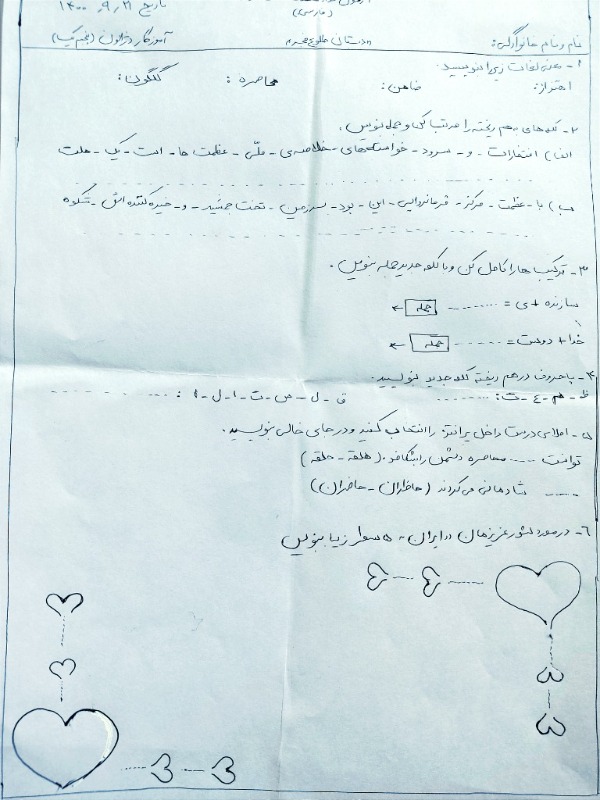 (فارسی)
تاریخ ۲۱ , ۹ , ۱۴۰۰
نام و نام خانوادگی: دبستان طلوع فجر آموزگار دزالون (پنجم یک)
۱- معنی لغات زیر را بنویسید.
اهتزاز: ضامن: محاصره: گلگون:
۲- کلمه‌های به هم ریخته را مرتب کن و جمله بنویس.
الف) افتخارات - و - سرود - خواسته‌های - خلاصه‌ی - ملّی - عظمت ها - است - یک - ملت
ب) با - عظمت - مرکز - فرمانروایی - این - بود - سرزمین - تخت جمشید - و - خیره کننده اش - شکوه
۳- ترکیب ها را کامل کن و با کلمه جدید جمله بنویس.
سازنده + ی = ........ جمله
خدا + دوست = ........ جمله
۴- با حروف در هم ریخته کلمه جدید بنویسید.
ظ - م - ع - ت: ........ ق - ل - ص - ت - ا - ل - ا :
۵- املای درست داخل پرانتز را انتخاب کنید و در جای خالی بنویسید.
توانست .... محاصره دشمن را بشکافد. (هلقه - حلقه)
.... شادمانی می‌کردند (حاظران - حاضران)
۶- در مورد کشور عزیزمان ایران، ۵ سطر زیبا بنویس